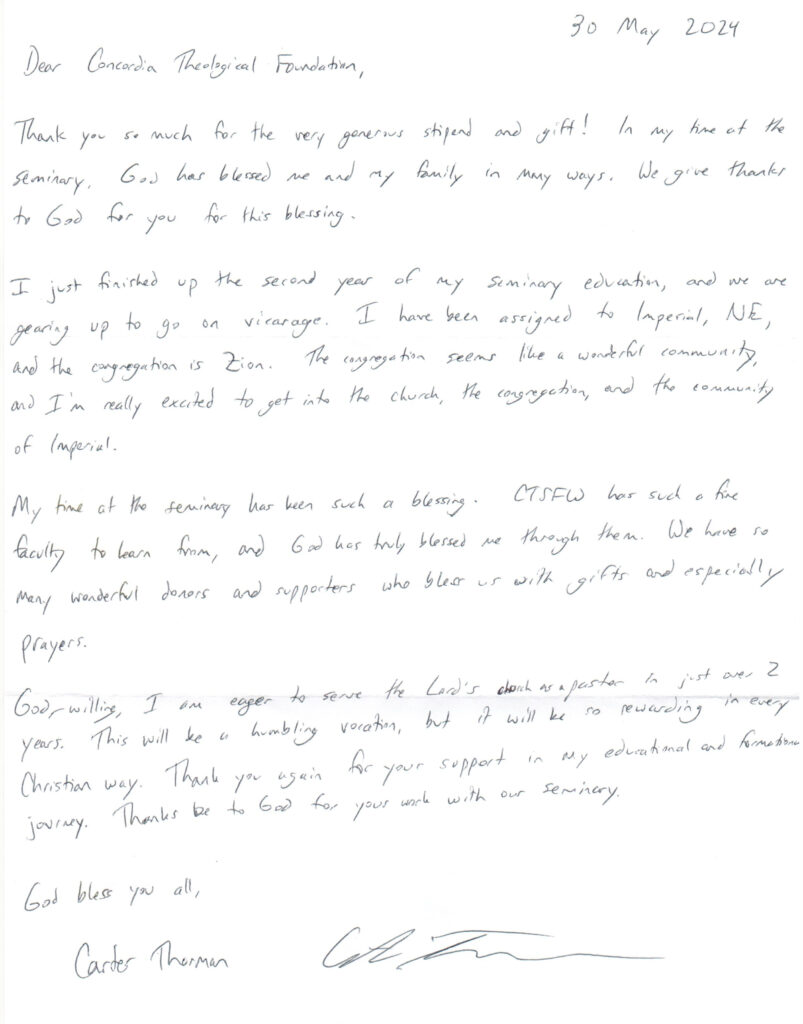 30 May 2024
Dear Concordia Theological Foundation,
Thank you so much for the very generous stipend and gift! In my time at the
seminary, God has blessed me and my family in many ways. We give thanks
to God for you for this blessing.
I just finished up the second year of my seminary education, and we are
gearing up to go on vicarage. I have been assigned to Imperial, NE,
and the congregation is Zion. The congregation seems like a wonderful community,
and I'm really excited to get into the church, the congregation, and the community
of Imperial.
My time at the seminary has been such a blessing. CTSFW has such a fine
faculty to learn from, and God has truly blessed me through them. We have so
many wonderful donors and supporters who bless us with gifts and especially
prayers.
God-willing, I am eager to serve the Lord's church as a pastor in just over 2
years. This will be a humbling vocation, but it will be so rewarding in every
Christian way. Thank you again for your support in my educational and formational
journey. Thanks be to God for your work with our seminary.
God bless you all,
Carter Thorman